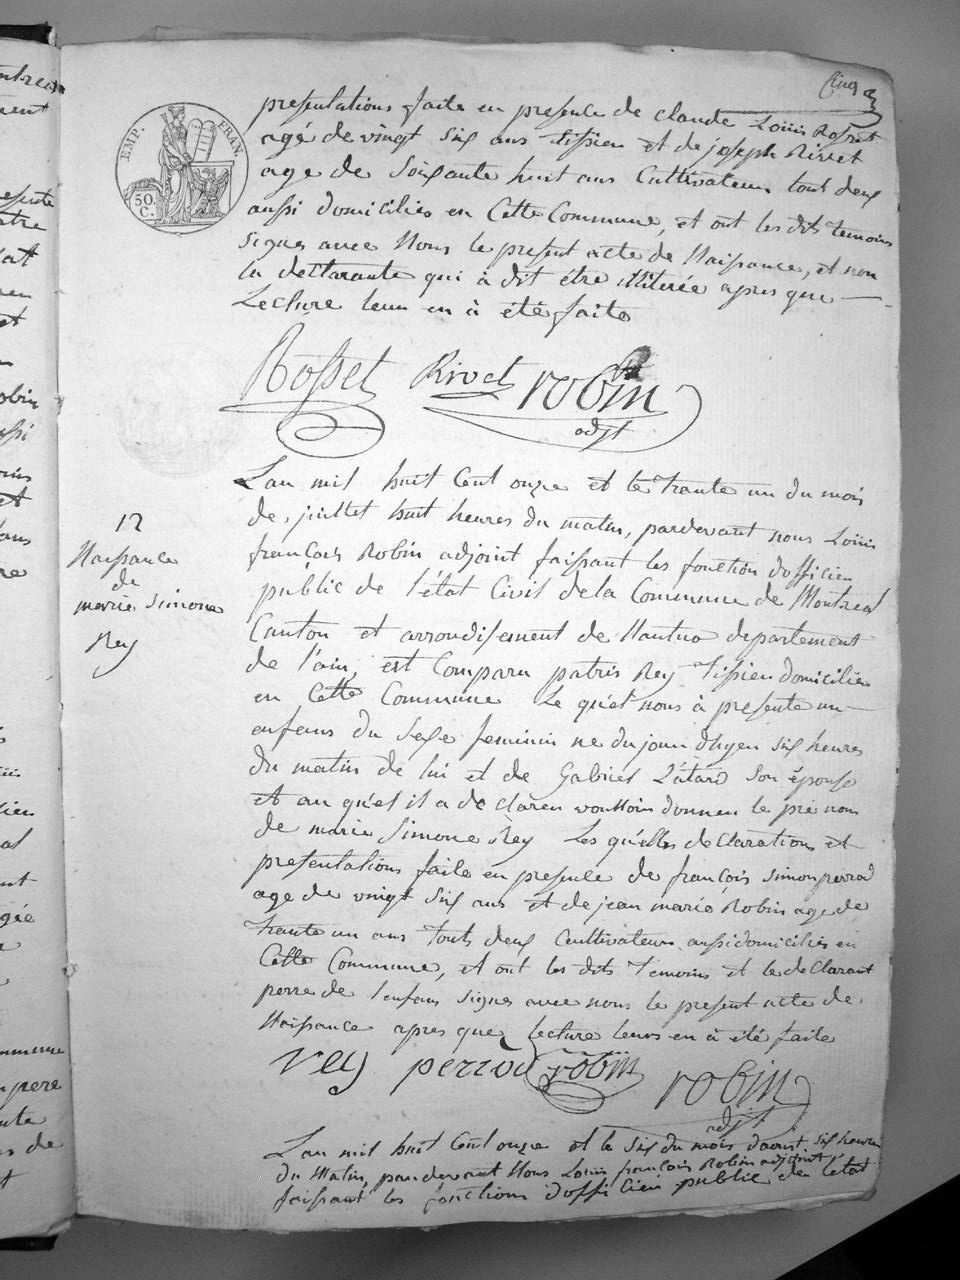 Cinq
EMP. FRAN.
50.
C.
presentations faite en presence de claude Loüis Rosset
agé de vingt six ans tissieu et de joseph Rivet
age de soixante huit ans Cultivateur tout deux
aussi domiciliés en Cette Commune, et ont les dits temoins
signes avec Nous le present acte de Naissance, et non
la declarante qui à dit étre illiterée apres que
Lecture leur en à été faite
Rosset Rivet robin
adjt
Lan mil huit Cent onze et le trante un du mois
de juillet huit heures du matin, pardevant nous Loüis
françois Robin adjoint faissant les fonction dofficier
public de l'état Civil de la Commune de Montreal
Canton et arrondissement de Nantua departement
de l'ain, est Comparu patris Rey Tissieu domicilie
en Cette Commune Le quel nous à presente un
enfans du sexe feminin ne du jour dhyer six heures
du matin de lui et de Gabriel Létard son épouse
et au quel il a declarer voulloir donner le pre nom
de marie Simone Rey Les quelles declarations et
presentations faite en presence de françois simon perrod
age de vingt six ans et de jean marie Robin age de
trante un ans touts deux Cultivateurs aussi domiciliés en
Cette Commune, et ont les dits Temoins et le declarant
perre de l'enfans signes avec nous le present acte de
Naissance apres que Lecture leurs en à été faite
rey perrod robin robin
adjt
12
Naissance
de
marie simone
Rey
Lan mil huit Cent onze et le six du mois daoust six heures
du Matin, pardevant Nous Loüis françois Robin adjoint
faissant les fonctions dofficier public de l'état